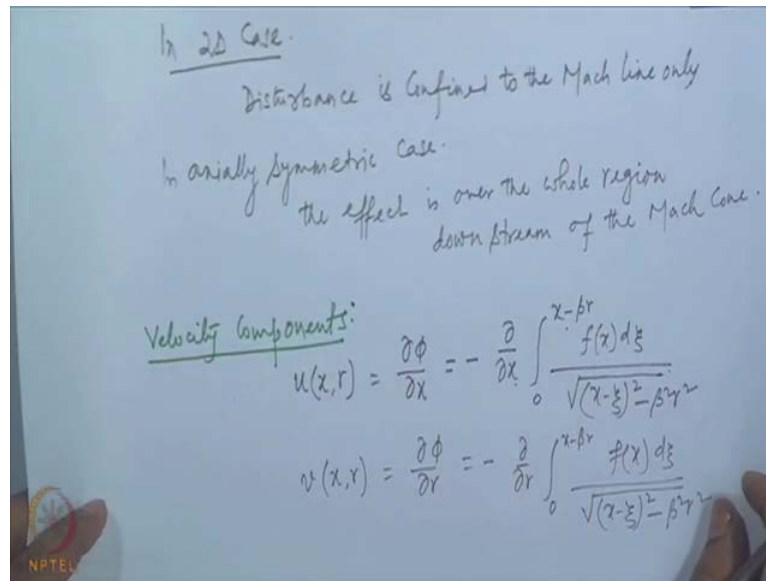 In 2D Case.
Disturbance is Confined to the Mach line only
In axially symmetric case.
the effect is over the whole region
down stream of the Mach Cone.
Velocity Components:
u(x,r) = ∂ϕ/∂x = - ∂/∂x ∫₀^{x-βr} f(x) dξ / √((x-ξ)² - β²r²)
v(x,r) = ∂ϕ/∂r = - ∂/∂r ∫₀^{x-βr} f(x) dξ / √((x-ξ)² - β²r²)
NPTEL